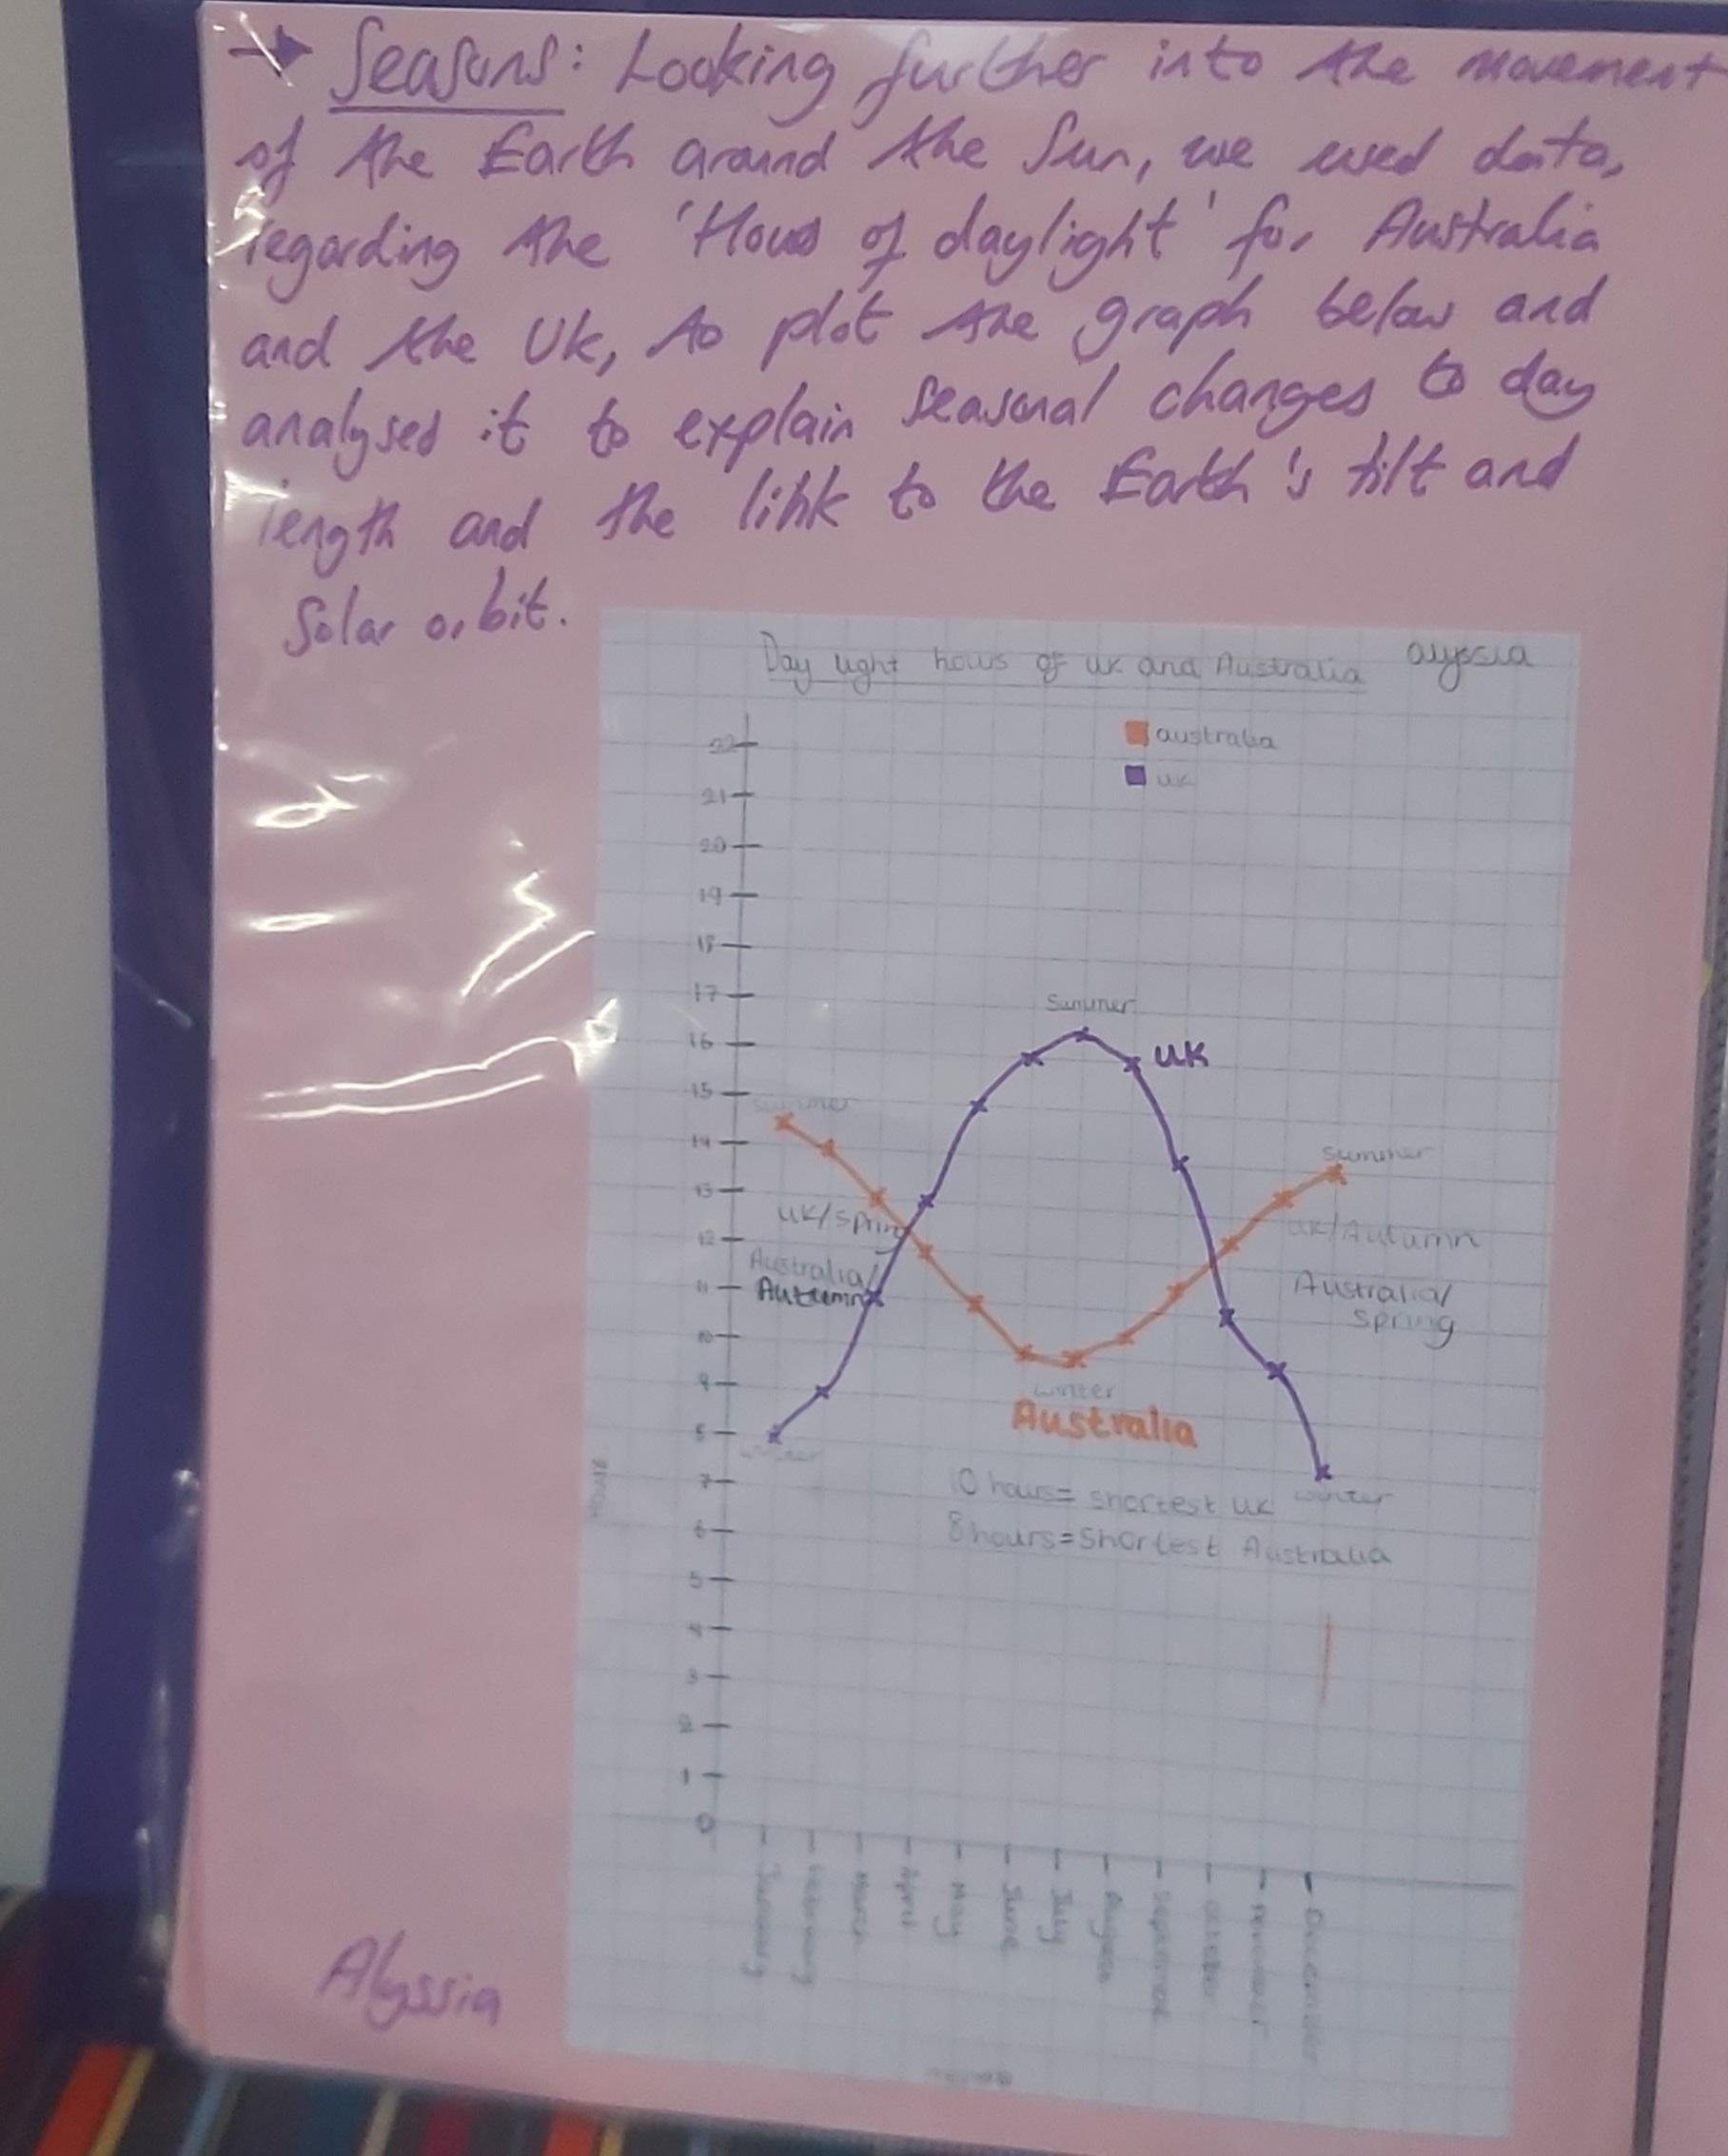 → Seasons: Looking further into the movement
of the Earth around the Sun, we used data,
regarding the 'Hours of daylight' for Australia
and the Uk, to plot the graph below and
analysed it to explain seasonal changes to day
length and the link to the Earth's tilt and
Solar orbit.
Day light hours of uk and Australia
alyssia
australia
uk
22
21
20
19
18
17
16
15
14
13
12
11
10
9
8
7
6
5
4
3
2
1
0
Summer
UK
summer
summer
uk/spring
Australia/
Autumn
uk/Autumn
Australia/
spring
winter
Australia
winter
10 hours= shortest uk
winter
8 hours=shortest Australia
January
February
March
April
May
June
July
August
October
November
December
Alyssia